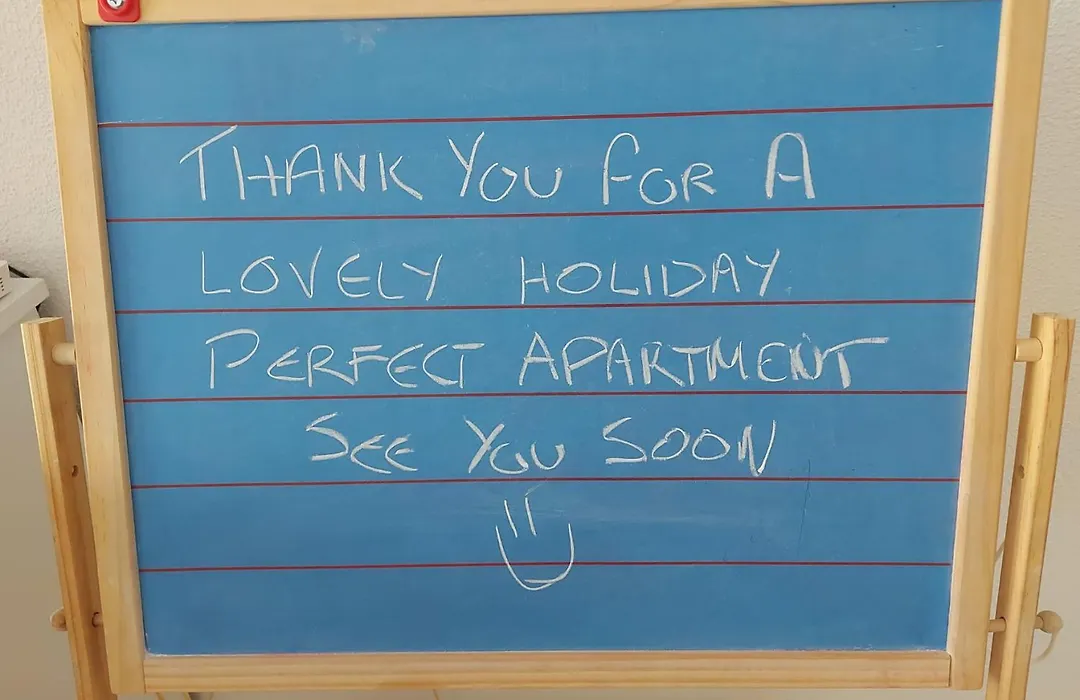 THANK YOU FOR A
LOVELY HOLIDAY
PERFECT APARTMENT
SEE YOU SOON